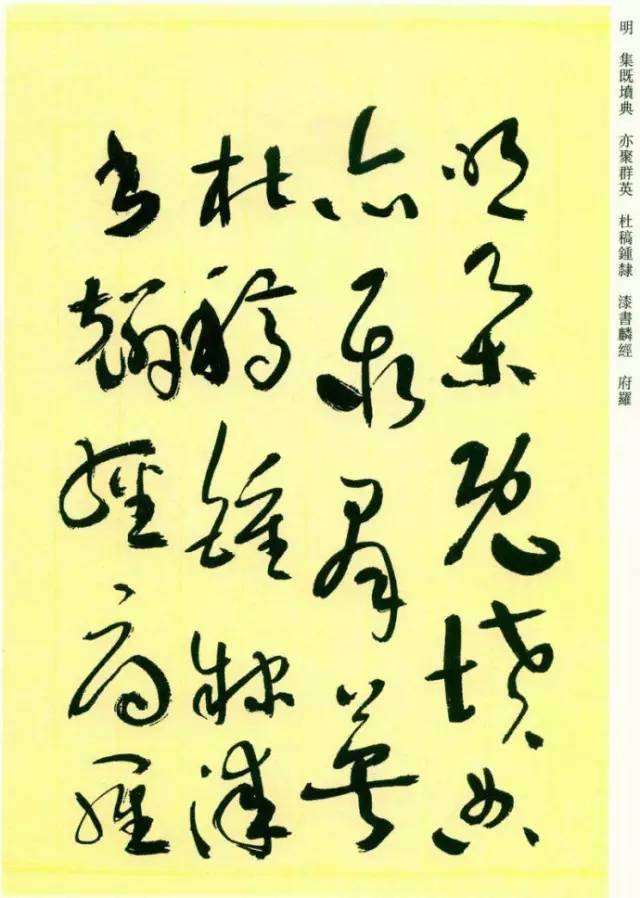 明 集既墳典 亦聚群英 杜稿鍾隸 漆書麟經 府羅
明集既墳典
亦聚群英
杜稿鍾隸漆
書麟經府羅